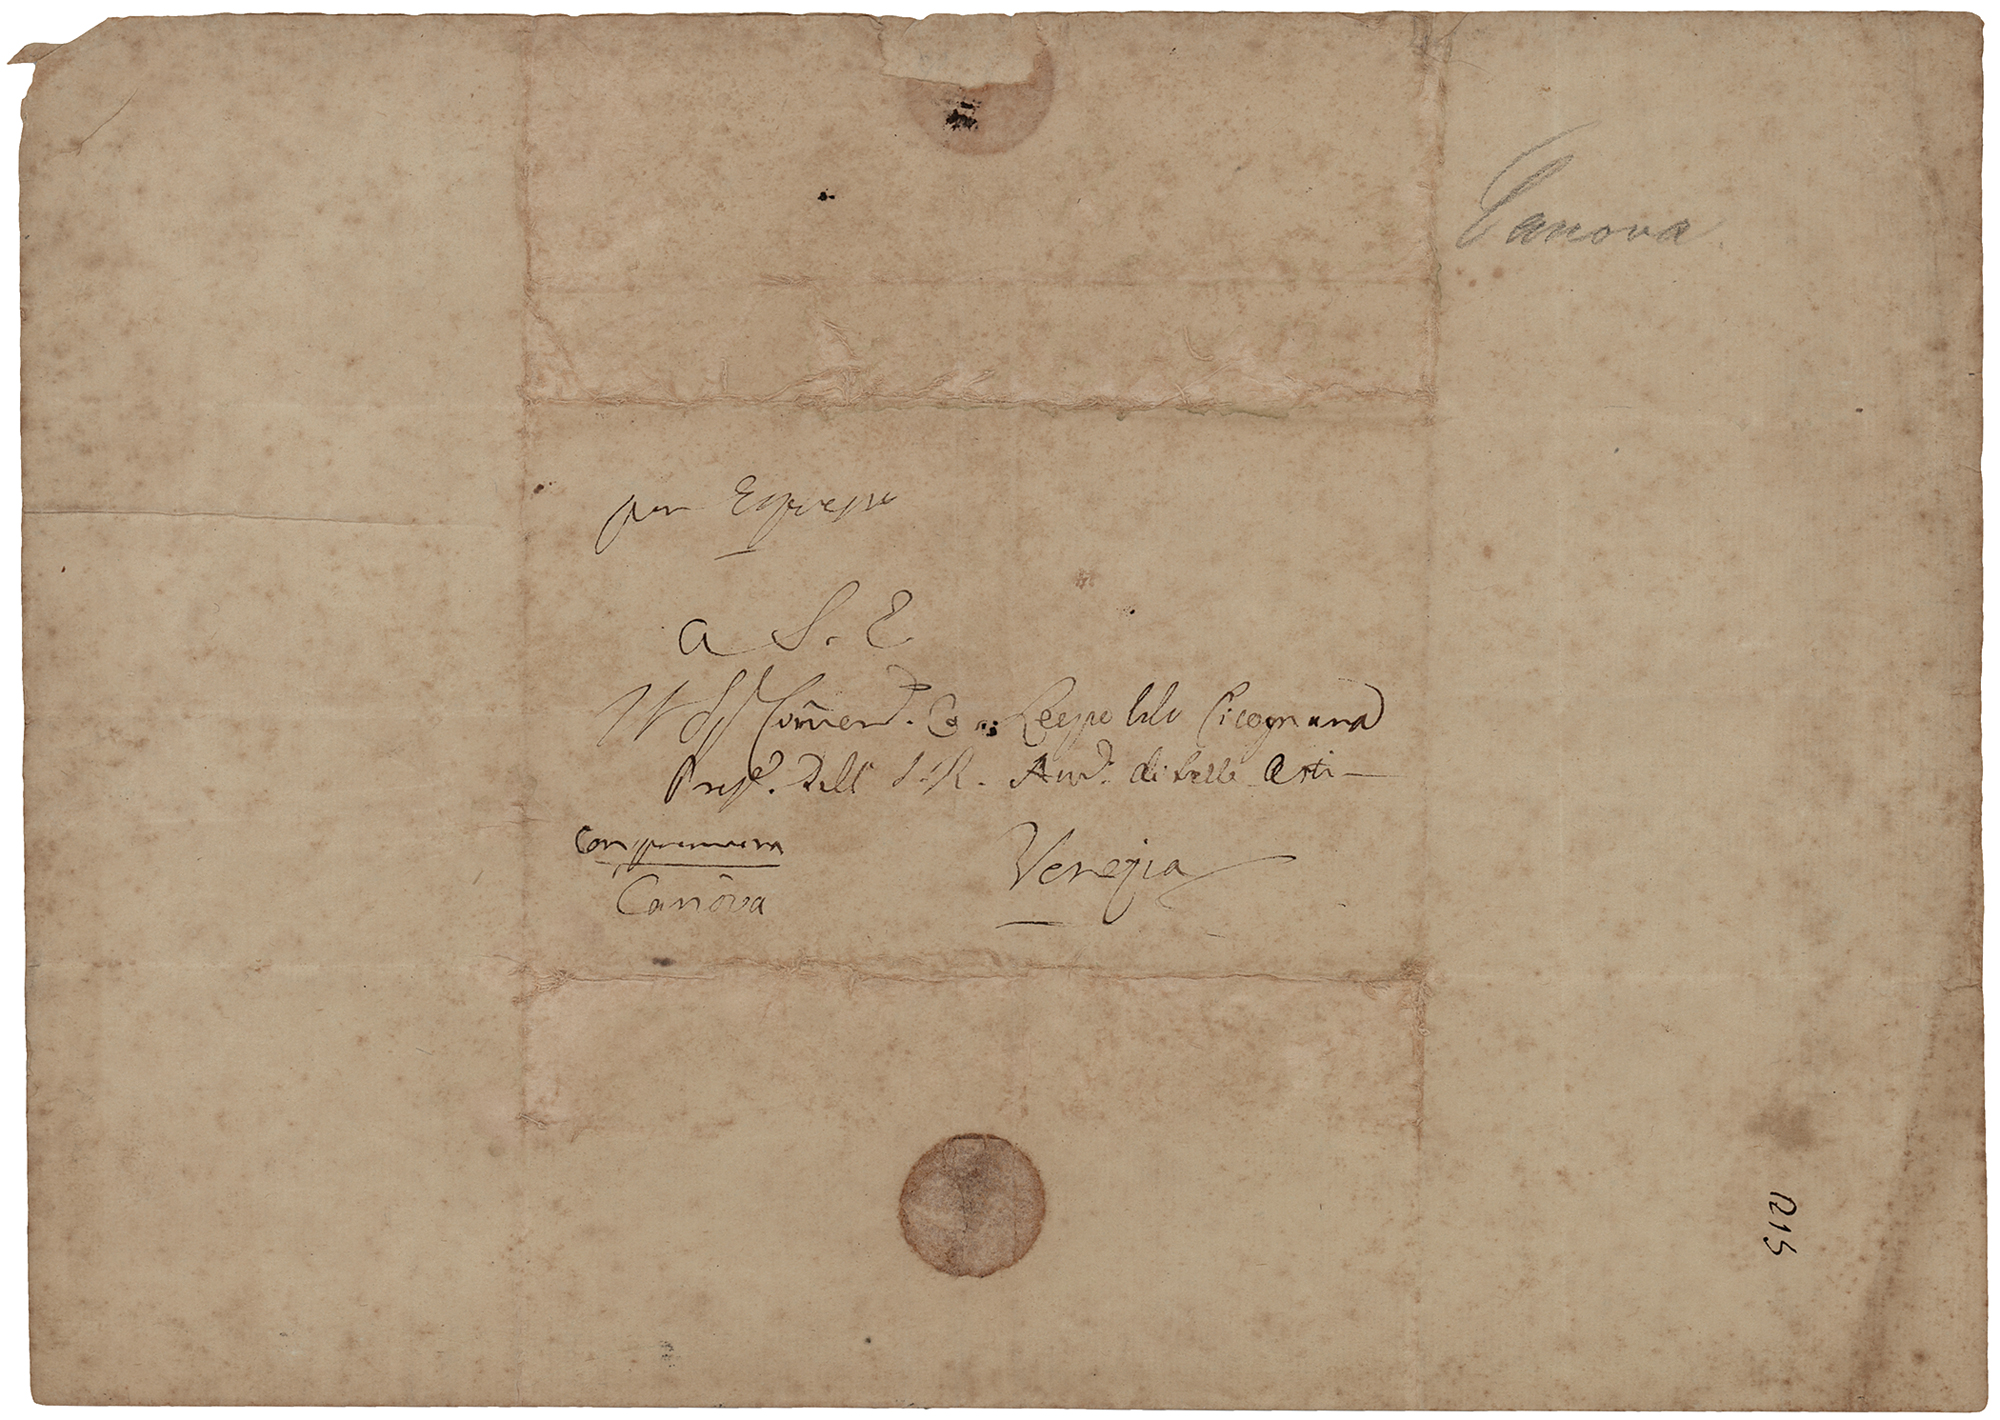 Canova
per Espresso
a S. E.
Il Sig Com̃end.r Co: Leopoldo Cicognara
Pres.e Dell' I. R. Accad.a di belle Arti
Con premura
Venezia
Canova
1215